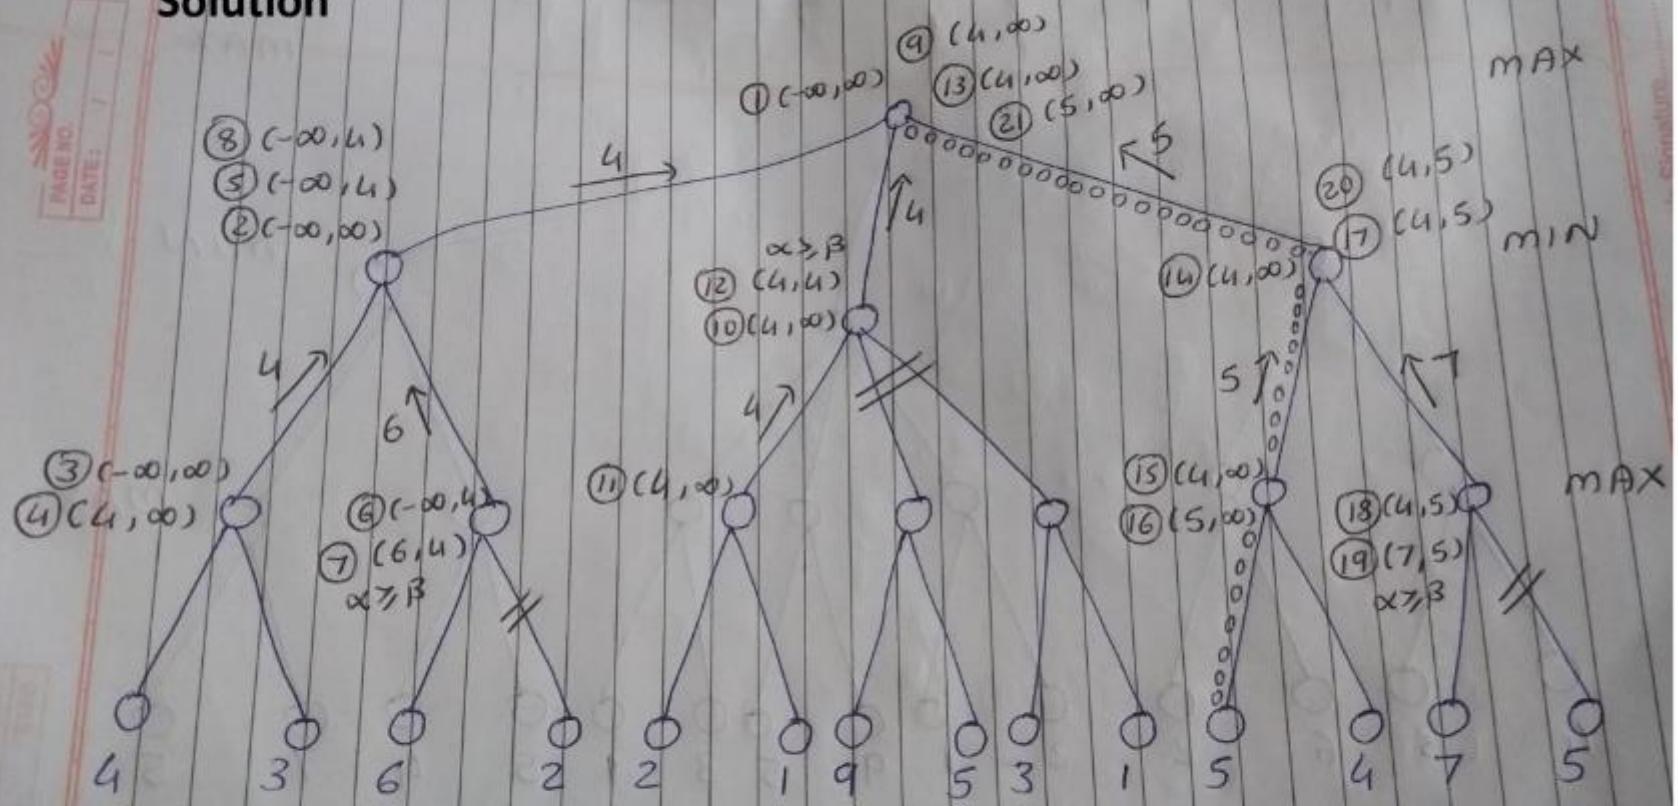 Solution
PAGE NO.
DATE: / /
⑨ (4,∞)
MAX
①(-∞,∞)
⑬(4,∞)
㉑ (5,∞)
⑧(-∞,4)
⑤(-∞,4)
②(-∞,∞)
4
5
⑳ (4,5)
⑰ (4,5)
MIN
4
α≥β
⑫ (4,4)
⑩(4,∞)
⑭(4,∞)
4
6
4
5
7
③(-∞,∞)
④(4,∞)
⑥(-∞,4)
⑦ (6,4)
α≥β
⑪(4,∞)
⑮(4,∞)
⑯(5,∞)
⑱(4,5)
⑲(7,5)
α≥β
MAX
4 3 6 2 2 1 9 5 3 1 5 4 7 5